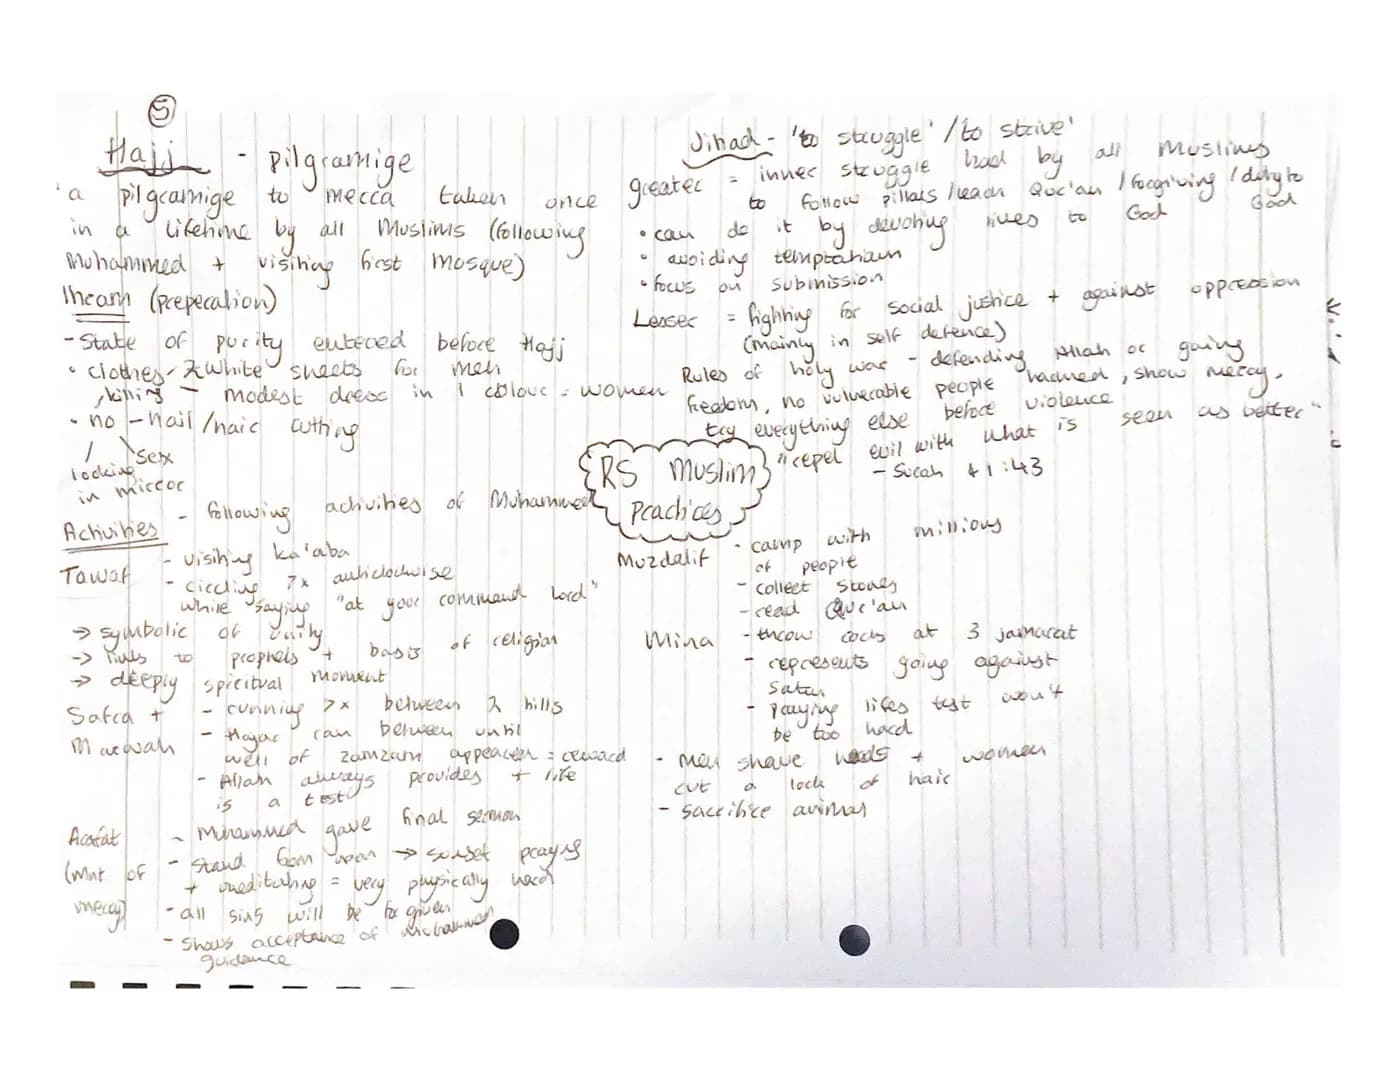 5
Hajj - pilgramige
'a pilgramige to mecca taken once
in a lifetime by all Muslims (following
Muhammed + visiting first mosque)
Ihram (preperation)
- State of purity entered before Hajj
• clothes - 2 white sheets for men
- modest dress in 1 colour = women
• no - killing
- nail/hair cutting
\ sex
/ looking
in mirror
Activities - following activities of Muhammed
Tawaf - visiting ka'aba
- circling 7x anticlockwise
while saying "at your command Lord"
→ symbolic of unity
→ links to prophets + basis of religion
→ deeply spiritual moment
Safra + Marwah - running 7x between 2 hills
- Hagar ran between until
well of zamzam appeared = reward
- Allah always provides + life
is a test
Arafat (Mnt of mercy) - Muhammed gave final sermon
- Stand from noon → sunset praying
+ meditating = very physically hard
- all sins will be forgiven
- Shows acceptance of Muhammed
guidance
Jihad - 'to struggle' / 'to strive'
greater = inner struggle had by all Muslims
to follow pillars / learn Qur'an / forgiving / duty to God
• can do it by devoting lives to God
• avoiding temptation
• focus on submission
Lesser = fighting for social justice + against oppression
(mainly in self defence)
Rules of holy war - defending Allah or gaing
freedom, no vulnerable people harmed, show mercy,
try everything else before violence
"repel evil with what is seen as better"
- Surah 41:43
RS Muslim
Practices
Muzdalif - camp with millions
of people
- collect stones
- read Qur'an
Mina - throw rocks at 3 jamarat
- represents going against
Satan
- praying lifes test won't
be too hard
- men shave heads + women
cut a lock of hair
- sacrifice animal